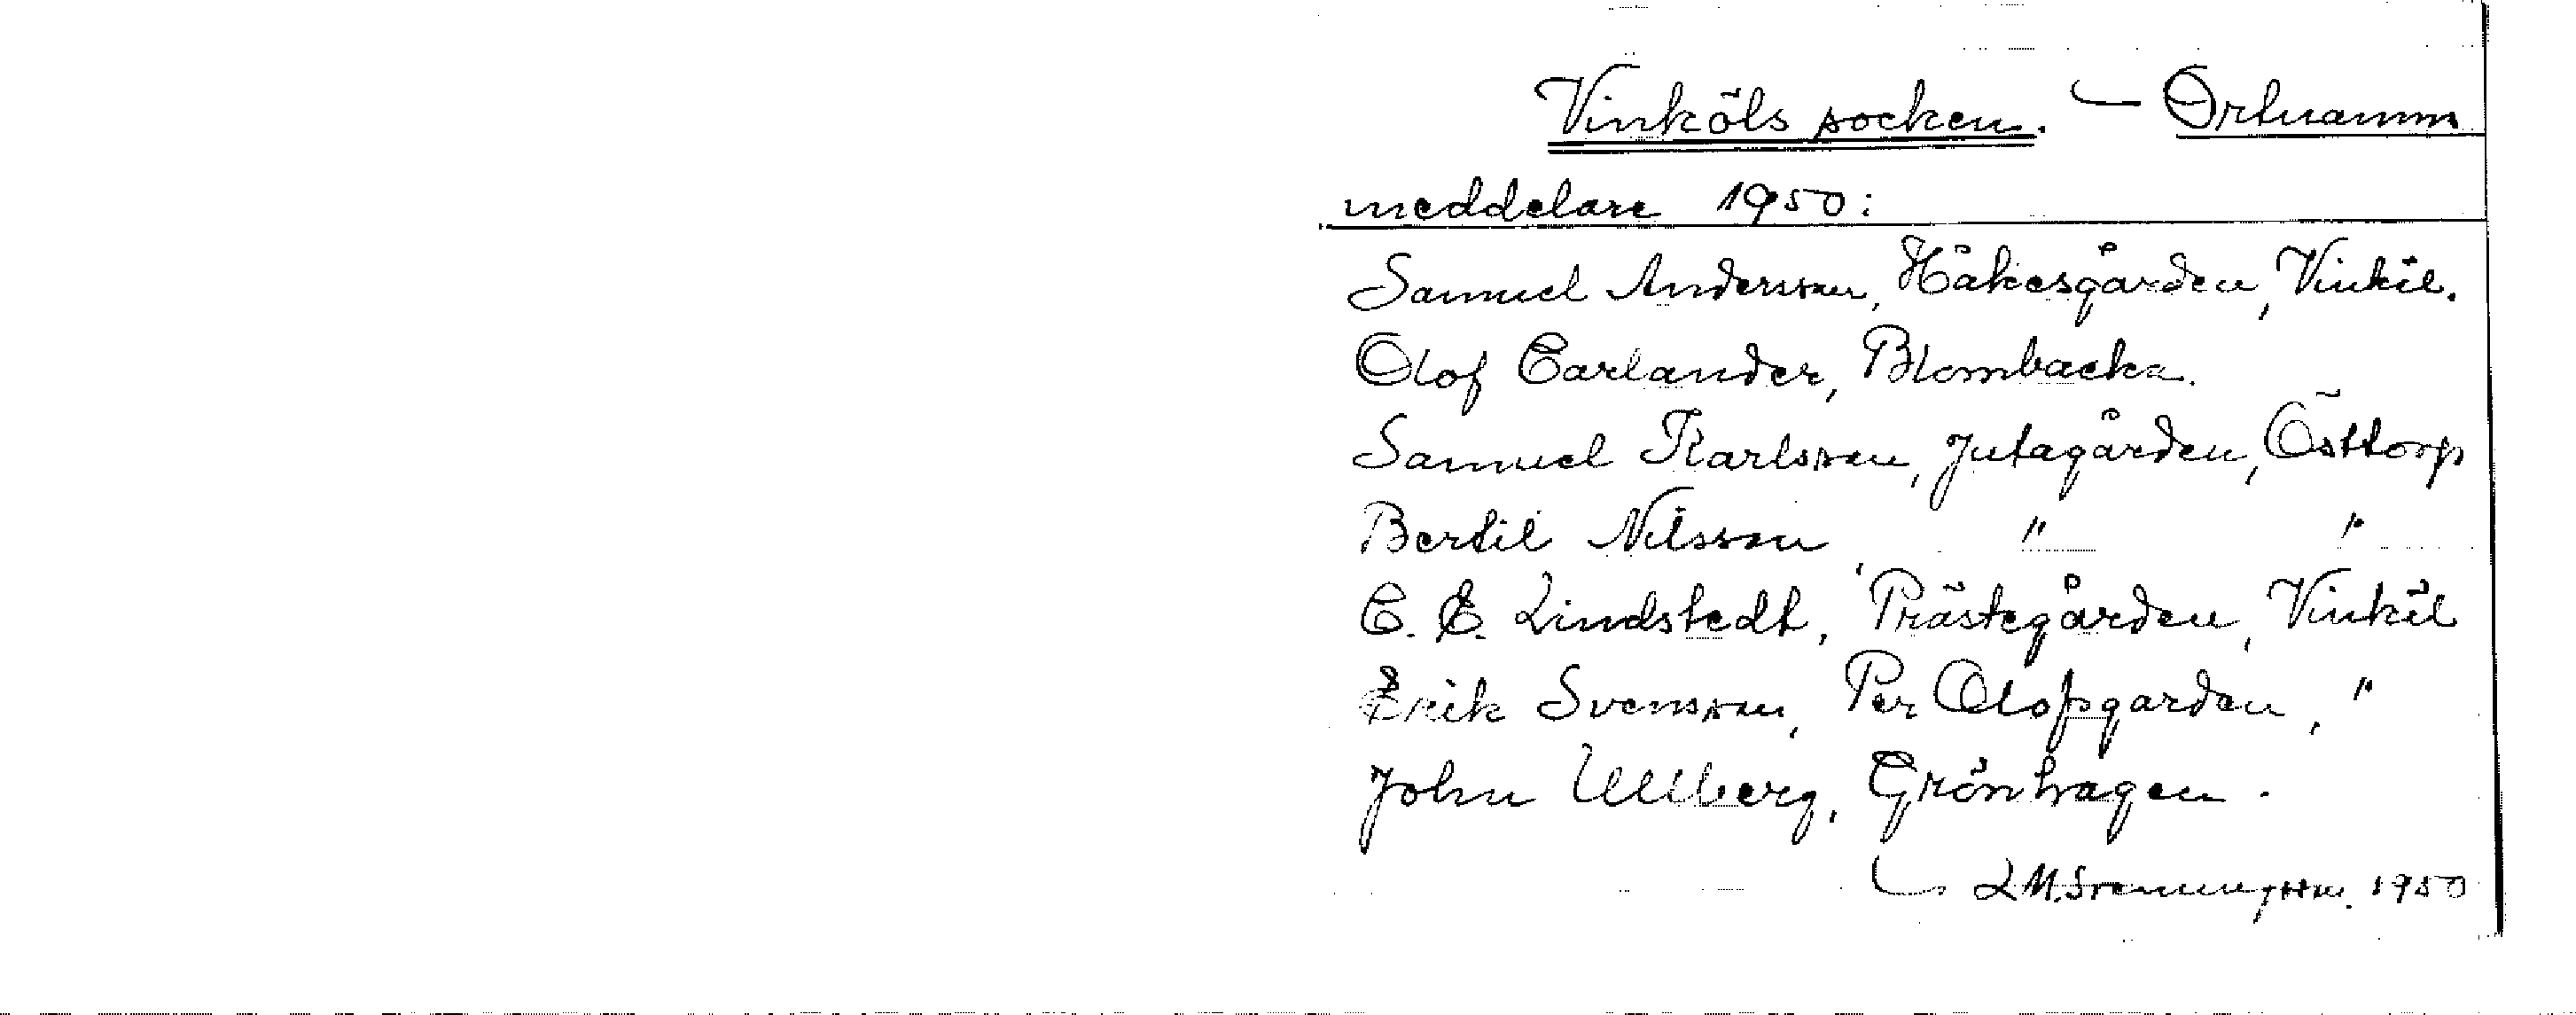 Vinköls socken. — Ortnamns
meddelare 1950:
Samuel Andersson, Håkesgården, Vinköl.
Olof Carlander, Blombacka.
Samuel Karlsson, Jutagården, Östtorp
Bertil Nilsson, " "
C. E. Lindstedt, Prästegården, Vinköl
Erik Svensson, Per Olofsgården, "
John Ullberg, Grönhagen.
L M. Svenungsson. 1950